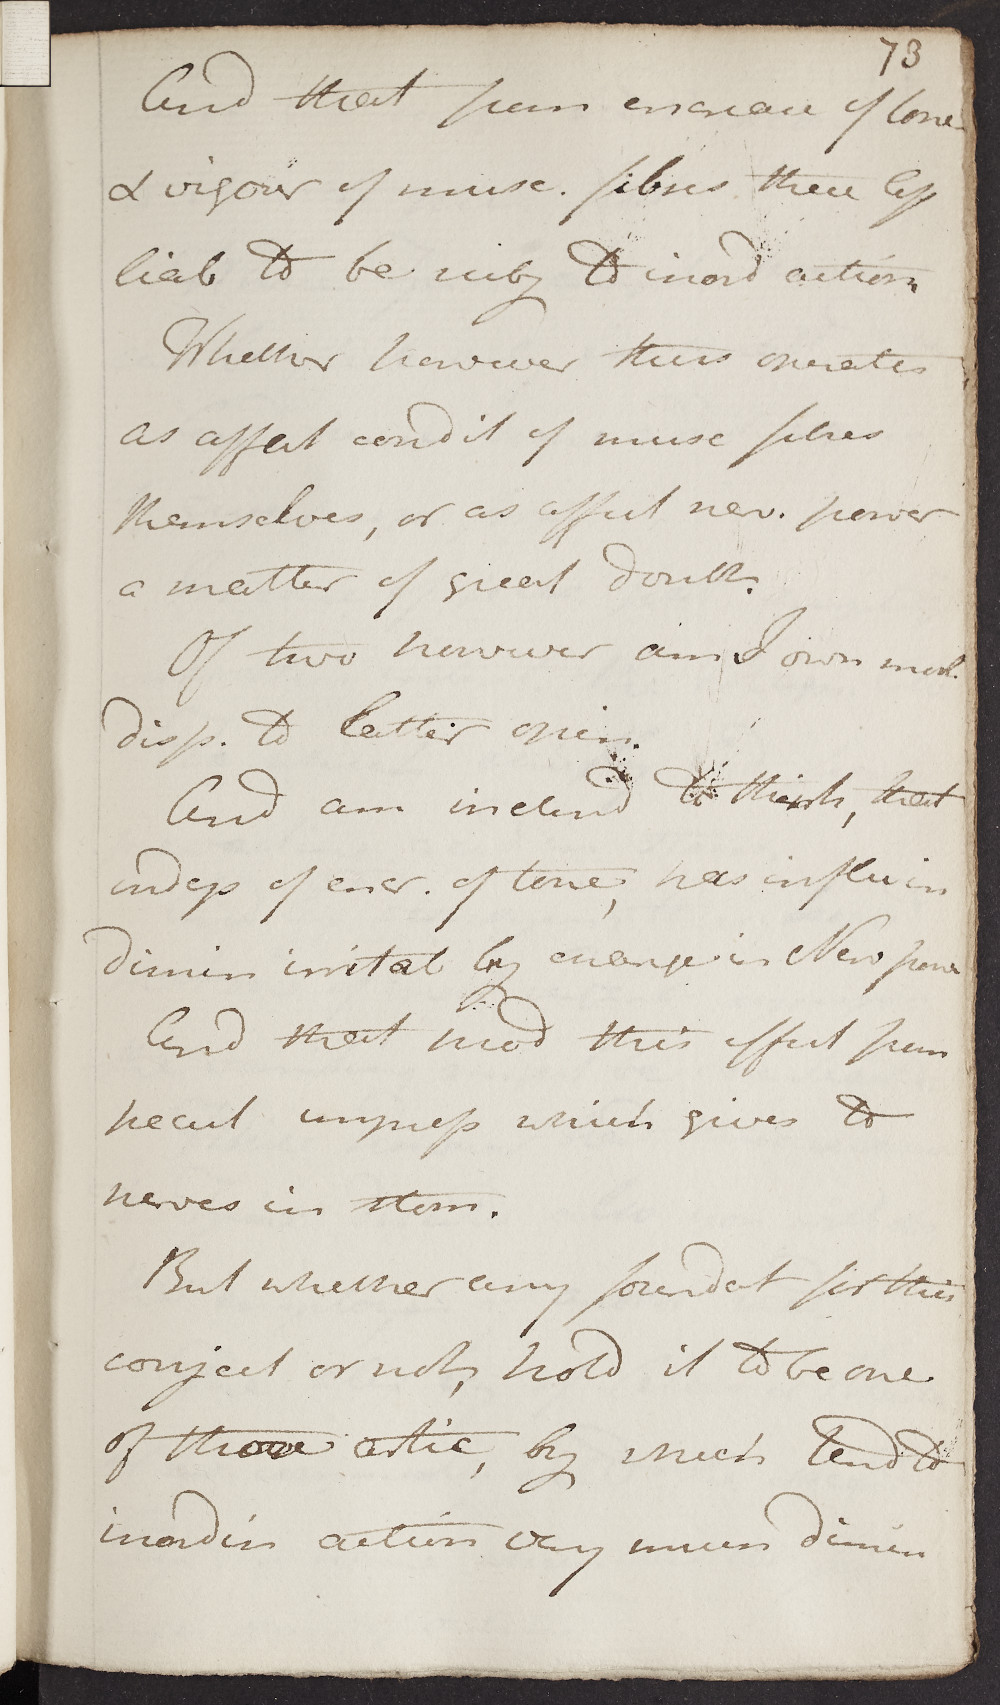 73
And that from increase of tone
& vigour of musc. fibres these less
liab to be subj to inord action
Whether however thus operates
as affect condit of musc fibres
themselves, or as affect nerv. power
a matter of great doubt.
Of two however am I own most
disp. to latter opin.
And am inclind to think, that
indep of encr. of tone, has influ in
dimin irritab by change in Nerv power
And that prod this effect from
pecul impress which gives to
nerves in stom.
But whether any foundat for this
conject or not, hold it to be one
of those artic, by which tend to
inordin action very much dimin